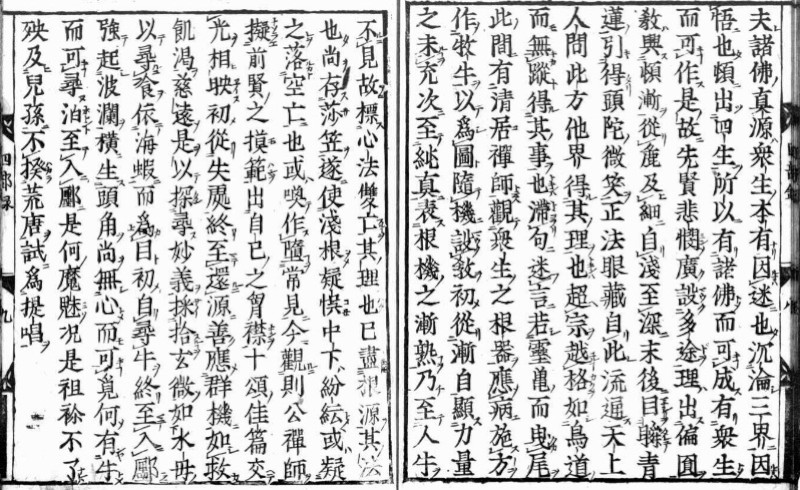 夫諸佛真源衆生本有因迷也沉淪三界因
悟也頓出四生所以有諸佛而可成有衆生
而可作是故先賢悲憫廣設多途理出偏圓
教興頓漸從麁及細自淺至深末後目瞬青
蓮引得頭陀微笑正法眼藏自此流通天上
人間此方他界得其理也超宗越格如鳥道
而無蹤得其事也滯句迷言若靈龜而曳尾
此間有清居禪師觀衆生之根器應病施方
作牧牛以爲圖隨機設教初從漸自顯力量
之未充次至純真表根機之漸熟乃至人牛
不見故標心法雙亡其理也已盡根源其法
也尚存莎笠遂使淺根疑悞中下紛紜或疑
之落空亡也或喚作墮常見今觀則公禪師
擬前賢之摸範出自己之胷襟十頌佳篇交
光相映初從失處終至還源善應群機如救
飢渴慈遠是以探尋妙義採拾玄微如水母
以尋飡依海蝦而爲目初自尋牛終至入鄽
強起波瀾橫生頭角尚無心而可覓何有牛
而可尋泊至入鄽是何魔魅況是祖祢不了
殃及兒孫不揆荒唐試爲提唱
四部録
九